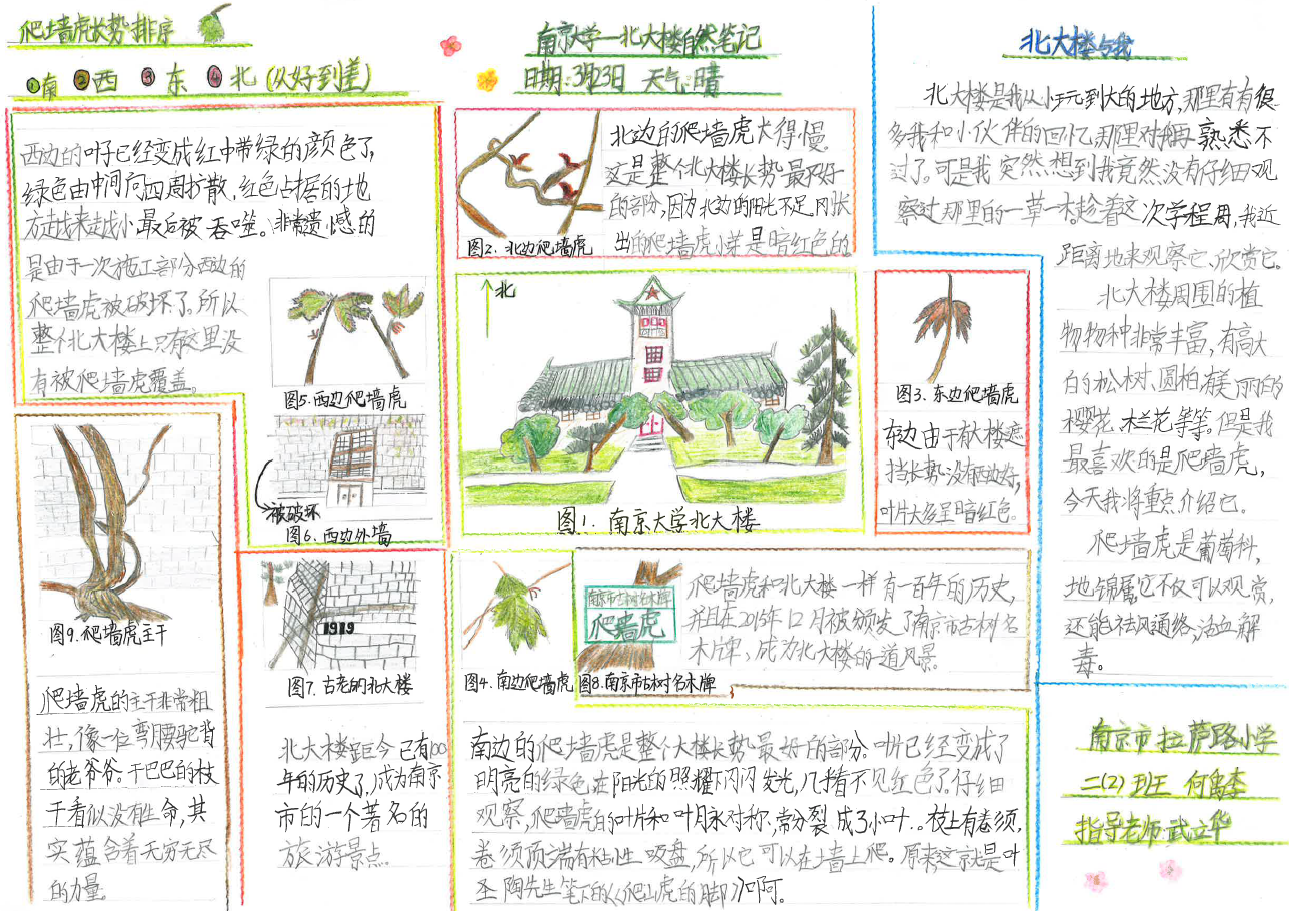 爬墙虎长势排序
①南 ②西 ③东 ④北(从好到差)
西边的叶子已经变成红中带绿的颜色了,
绿色由中间向四周扩散,红色占据的地
方越来越小最后被吞噬。非常遗憾的
是由于一次施工部分西边的
爬墙虎被破坏了。所以
整个北大楼上只有这里没
有被爬墙虎覆盖。
图5.西边爬墙虎
被破坏
图6.西边外墙
图9.爬墙虎主干
爬墙虎的主干非常粗
壮,像一位弯腰驼背
的老爷爷。干巴巴的枝
干看似没有生命,其
实蕴含着无穷无尽
的力量。
1919
图7.古老的北大楼
北大楼距今已有100
年的历史了,成为南京
市的一个著名的
旅游景点。
南京大学—北大楼自然笔记
日期:3月23日 天气:晴
图2.北边爬墙虎
北边的爬墙虎长得慢。
这是整个北大楼长势最不好
的部分,因为北边的阳光不足,刚长
出的爬墙虎小芽是暗红色的
北
图1.南京大学北大楼
图3.东边爬墙虎
东边由于有大楼遮
挡长势没有西边好,
叶片大多呈暗红色。
图4.南边爬墙虎
南京市古树名木牌
爬墙虎
图8.南京市古树名木牌
爬墙虎和北大楼一样有一百年的历史,
并且在2015年12月被颁发了南京市古树名
木牌,成为北大楼的一道风景。
南边的爬墙虎是整个大楼长势最好的部分。叶片已经变成了
明亮的绿色,在阳光的照耀下闪闪发光,几乎看不见红色了。仔细
观察,爬墙虎的叶片和叶脉对称,常分裂成3小叶。枝上有卷须,
卷须顶端有粘性吸盘,所以它可以在墙上爬。原来这就是叶
圣陶先生笔下的《爬山虎的脚》啊。
北大楼与我
北大楼是我从小玩到大的地方,那里有有很
多我和小伙伴的回忆,那里对我再熟悉不
过了。可是我突然想到我竟然没有仔细观
察过那里的一草一木。趁着这次学程周,我近
距离地来观察它、欣赏它。
北大楼周围的植
物物种非常丰富,有高大
的松树、圆柏,有美丽的
樱花、木兰花等等。但是我
最喜欢的是爬墙虎,
今天我将重点介绍它。
爬墙虎是葡萄科,
地锦属,它不仅可以观赏,
还能祛风通络,活血解
毒。
南京市拉萨路小学
二(2)班 何禹李
指导老师:武立华